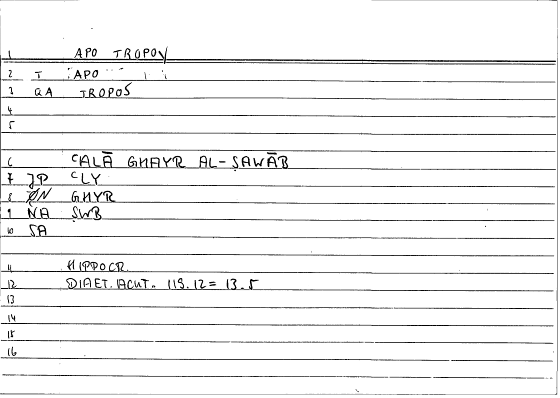 1 APO TROPOY
2 T APO
3 QA TROPOS
4
5
6 ʿALĀ GHAYR AL-ṢAWĀB
7 JP ʿLY
8 ØN GHYR
9 NA ṢWB
10 SA
11 HIPPOCR.
12 DIAET. ACUT. 119.12 = 13.5
13
14
15
16